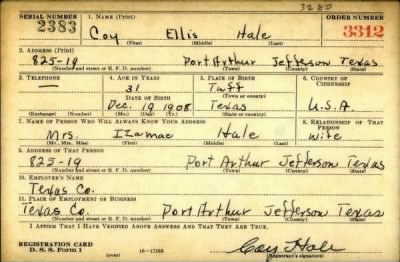 3280
SERIAL NUMBER 1. NAME (Print) ORDER NUMBER
2383 Coy Ellis Hale 3312
(First) (Middle) (Last)
2. ADDRESS (Print)
825-19 Port Arthur Jefferson Texas
(Number and street or R. F. D. number) (Town) (County) (State)
3. TELEPHONE 4. AGE IN YEARS 5. PLACE OF BIRTH 6. COUNTRY OF CITIZENSHIP
— 31 Tuff
DATE OF BIRTH (Town or county)
Dec. 19 1908 Texas U.S.A.
(Exchange) (Number) (Mo.) (Day) (Yr.) (State or country)
7. NAME OF PERSON WHO WILL ALWAYS KNOW YOUR ADDRESS 8. RELATIONSHIP OF THAT PERSON
Mrs. Izamae Hale Wife
(Mr., Mrs., Miss) (First) (Middle) (Last)
9. ADDRESS OF THAT PERSON
825-19 Port Arthur Jefferson Texas
(Number and street or R. F. D. number) (Town) (County) (State)
10. EMPLOYER'S NAME
Texas Co.
11. PLACE OF EMPLOYMENT OR BUSINESS
Texas Co. Port Arthur Jefferson Texas
(Number and street or R. F. D. number) (Town) (County) (State)
I AFFIRM THAT I HAVE VERIFIED ABOVE ANSWERS AND THAT THEY ARE TRUE.
REGISTRATION CARD
D. S. S. Form 1 (over) Coy Hale
(Registrant's signature)